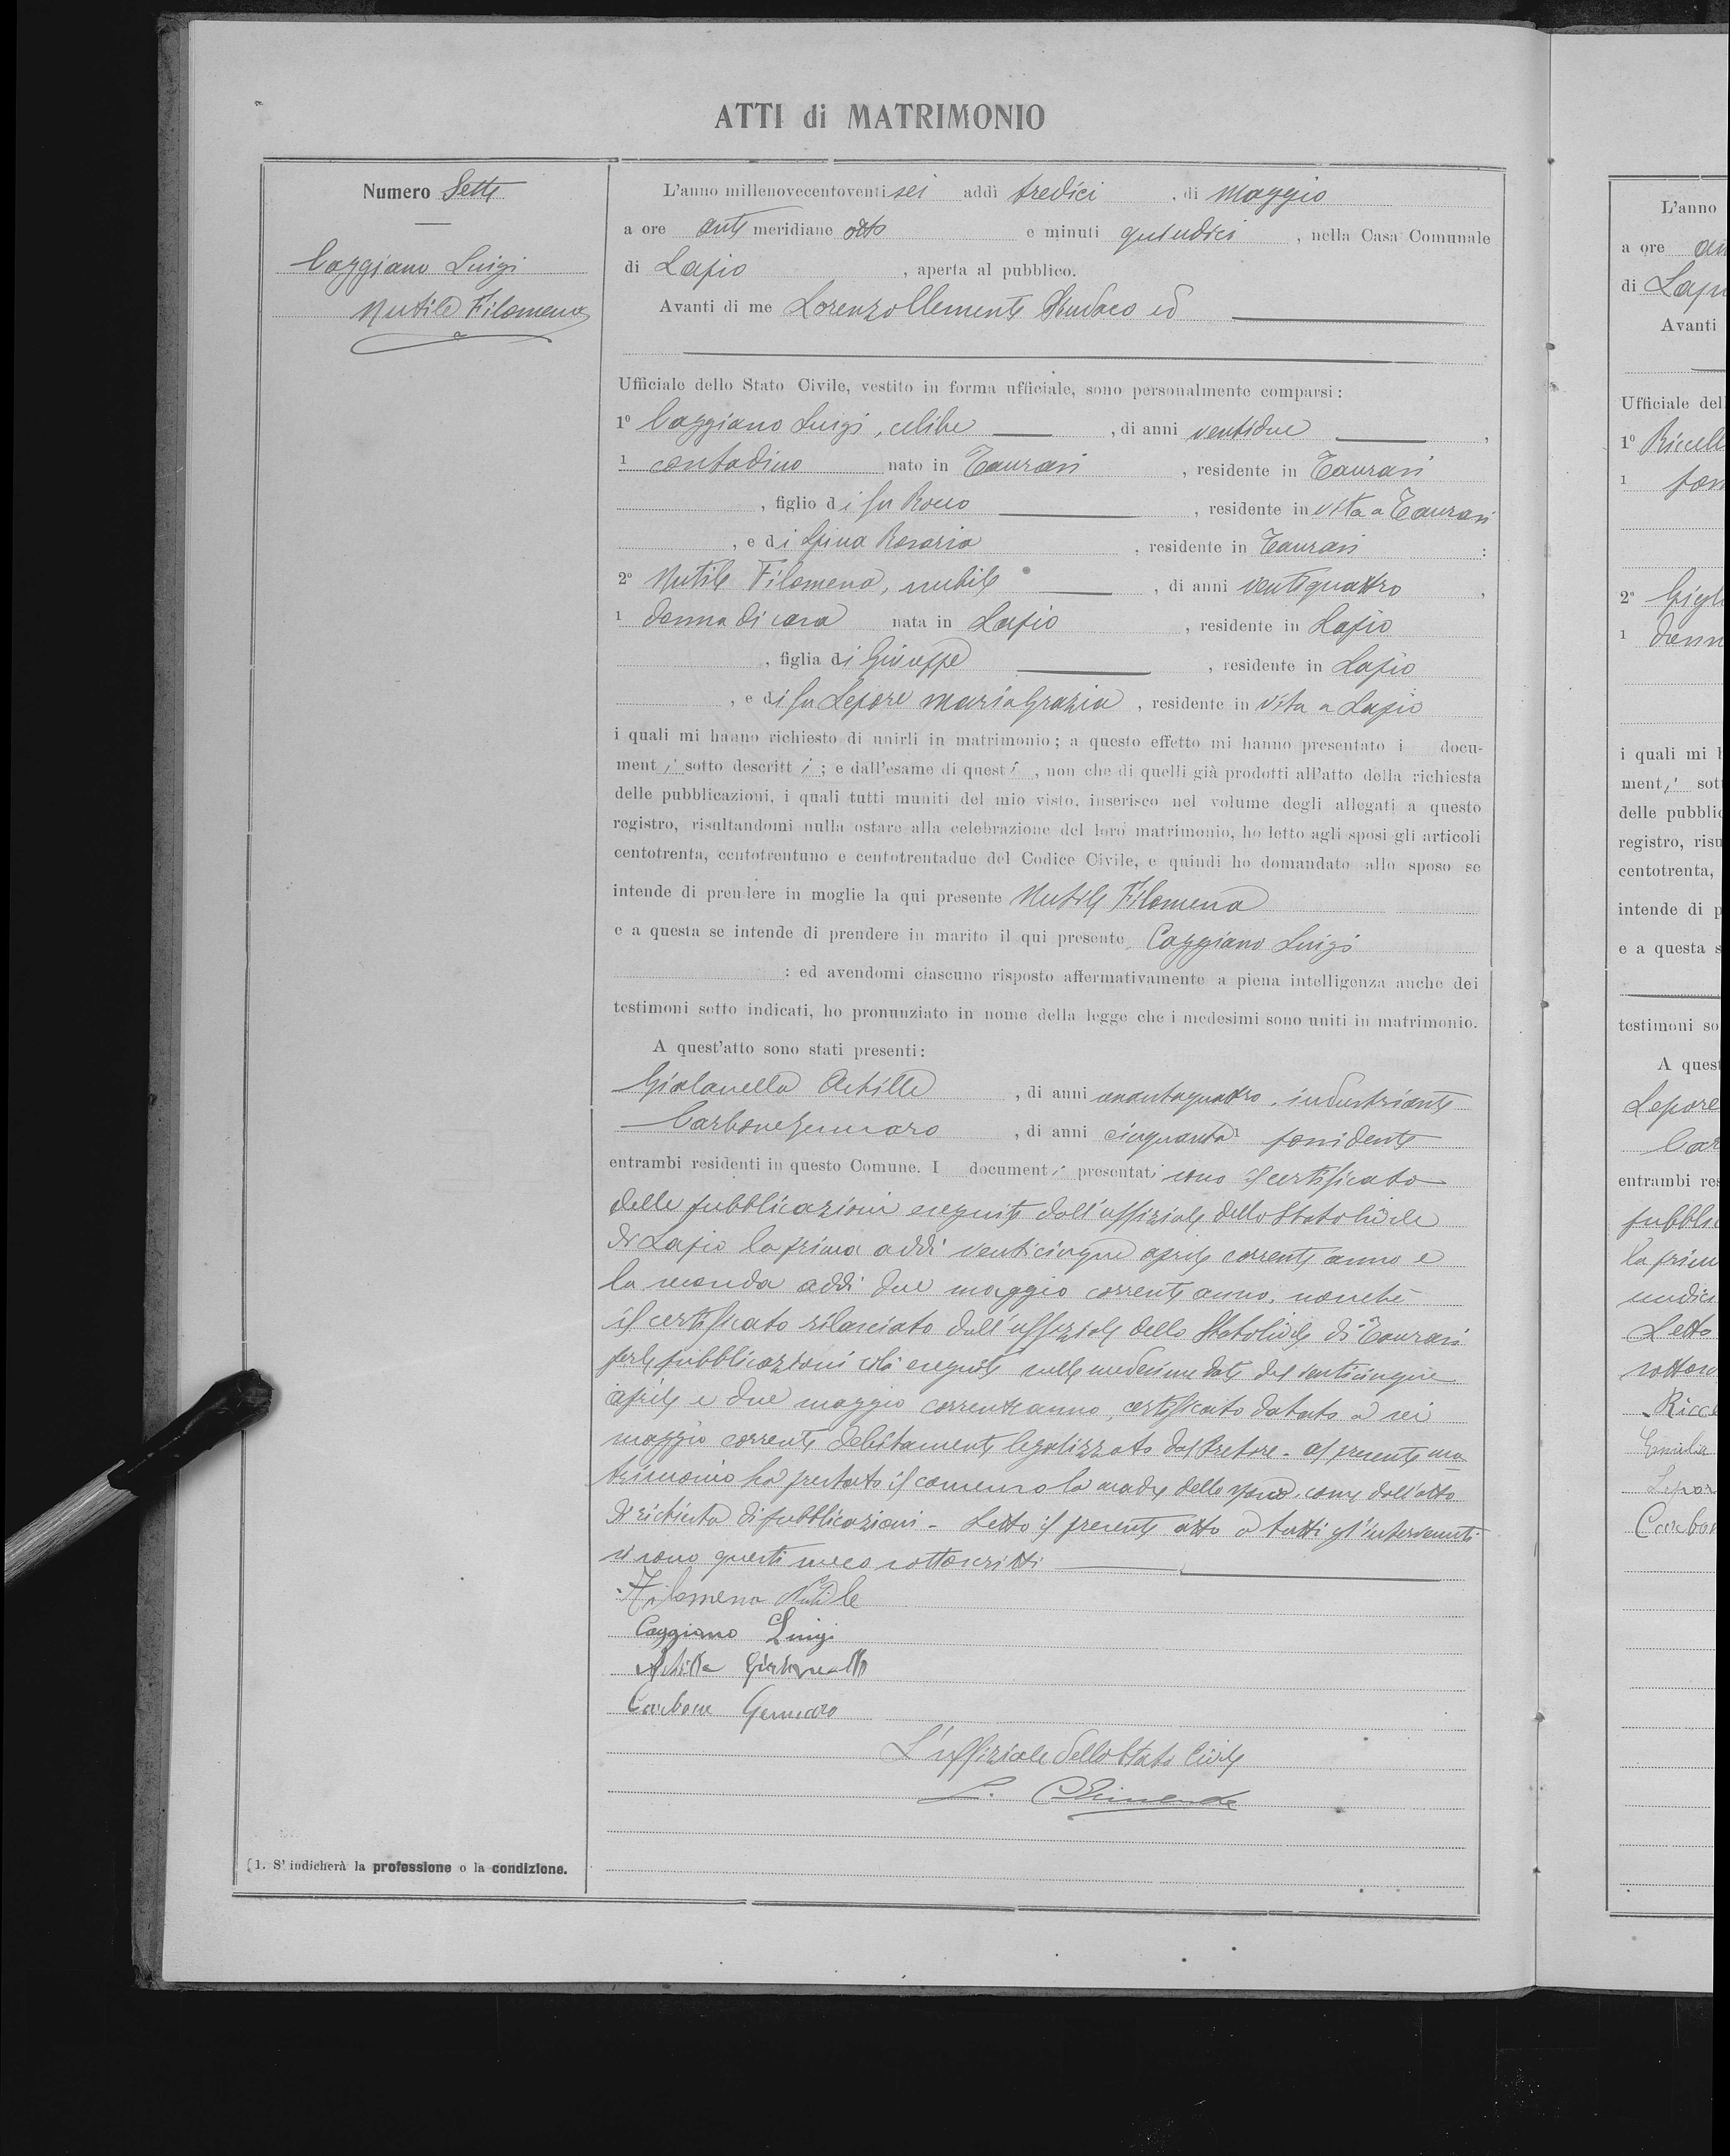 ATTI di MATRIMONIO
Numero Sette
Caggiano Luigi
Nutile Filomena
(1. S'indicherà la professione o la condizione.
L'anno millenovecentoventi sei addì tredici di Maggio
a ore anti meridiane otto e minuti quindici, nella Casa Comunale
di Lapio, aperta al pubblico.
Avanti di me Lorenzo Clemente Sindaco ed
Ufficiale dello Stato Civile, vestito in forma ufficiale, sono personalmente comparsi:
1º Caggiano Luigi, celibe, di anni ventidue,
1 contadino nato in Taurasi, residente in Taurasi
, figlio di fu Rocco, residente in vita a Taurasi
, e di Spina Rosaria, residente in Taurasi:
2º Nutile Filomena, nubile, di anni ventiquattro,
1 donna di casa nata in Lapio, residente in Lapio
, figlia di Giuseppe, residente in Lapio
, e di fu Lepore Maria Grazia, residente in vita a Lapio
i quali mi hanno richiesto di unirli in matrimonio; a questo effetto mi hanno presentato i docu-
menti sotto descritti; e dall'esame di questi, non che di quelli già prodotti all'atto della richiesta
delle pubblicazioni, i quali tutti muniti del mio visto, inserisco nel volume degli allegati a questo
registro, risultandomi nulla ostare alla celebrazione del loro matrimonio, ho letto agli sposi gli articoli
centotrenta, centotrentuno e centotrentadue del Codice Civile, e quindi ho domandato allo sposo se
intende di prendere in moglie la qui presente Nutile Filomena
e a questa se intende di prendere in marito il qui presente Caggiano Luigi
: ed avendomi ciascuno risposto affermativamente a piena intelligenza anche dei
testimoni sotto indicati, ho pronunziato in nome della legge che i medesimi sono uniti in matrimonio.
A quest'atto sono stati presenti:
Gialanella Achille, di anni quattro, industriante
Carbone Gennaro, di anni cinquanta possidente
entrambi residenti in questo Comune. I documenti presentati sono il certificato
delle pubblicazioni eseguite dall'uffiziale dello Stato Civile
di Lapio la prima addì venticinque aprile corrente anno e
la seconda addì due maggio corrente anno, nonché
il certificato rilasciato dall'uffiziale dello Stato Civile di Taurasi
per le pubblicazioni colà eseguite nelle medesime date del venticinque
aprile e due maggio corrente anno, certificato datato a sei
maggio corrente debitamente legalizzato dal Pretore. Al presente ma
trimonio ha prestato il consenso la madre dello sposo, come dall'atto
di richiesta di pubblicazioni. Letto il presente atto a tutti gl'intervenuti
si sono questi meco sottoscritti
Filomena Nutile
Caggiano Luigi
Achille Gialanella
Carbone Gennaro
L'uffiziale dello Stato Civile
L. Clemente
L'anno
a ore an
di Lapi
Avanti
Ufficiale del
1º Riccell
1 pos
2º Gigl
1 donn
i quali mi h
menti sot
delle pubblic
registro, risu
centotrenta,
intende di p
e a questa s
testimoni so
A quest
Lepore
Car
entrambi res
pubbli
la prim
undici
Letto
sottos
Ricce
Emilia
Lepor
Carbon